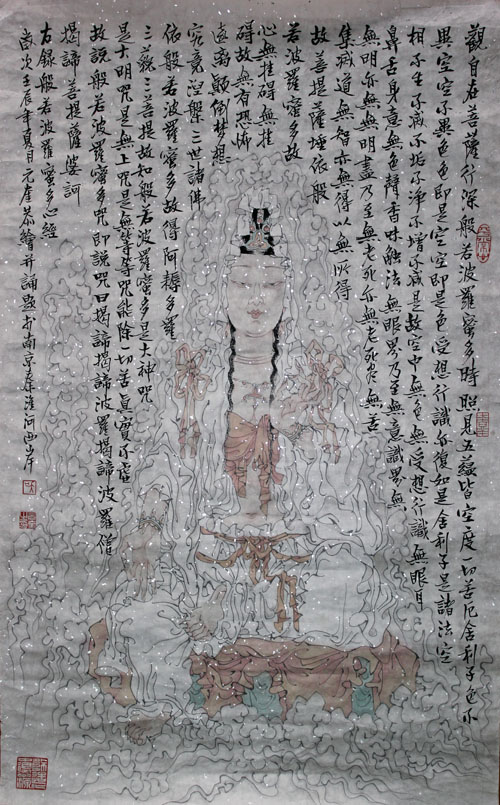 觀自在菩薩行深般若波羅蜜多時照見五蘊皆空度一切苦厄舍利子色不
異空空不異色色即是空空即是色受想行識亦復如是舍利子是諸法空
相不生不滅不垢不淨不增不減是故空中無色無受想行識無眼耳
鼻舌身意無色聲香味觸法無眼界乃至無意識界無
無明亦無無明盡乃至無老死亦無老死盡無苦
集滅道無智亦無得以無所得
故菩提薩埵依般
若波羅蜜多故
心無挂礙無挂
礙故無有恐怖
遠離顛倒夢想
究竟涅槃三世諸佛
依般若波羅蜜多故得阿耨多羅
三藐三菩提故知般若波羅蜜多是大神咒
是大明咒是無上咒是無等等咒能除一切苦真實不虛
故說般若波羅蜜多咒即說咒曰揭諦揭諦波羅揭諦波羅僧
揭諦菩提薩婆訶
右錄般若波羅蜜多心經
歲次壬辰年夏月元奎恭繪并誦題於南京秦淮河西岸